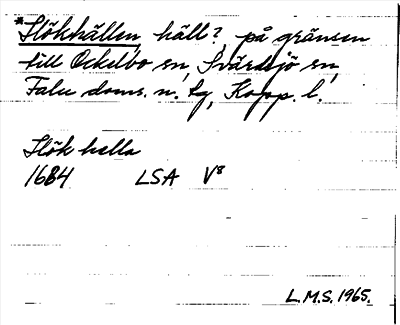 *Slökhällen, häll? på gränsen
till Ockelbo sn, Svärdsjö sn,
Falu doms. n. tg, Kopp. l.
Slök hella
1684 LSA V8
L.M.S. 1965.